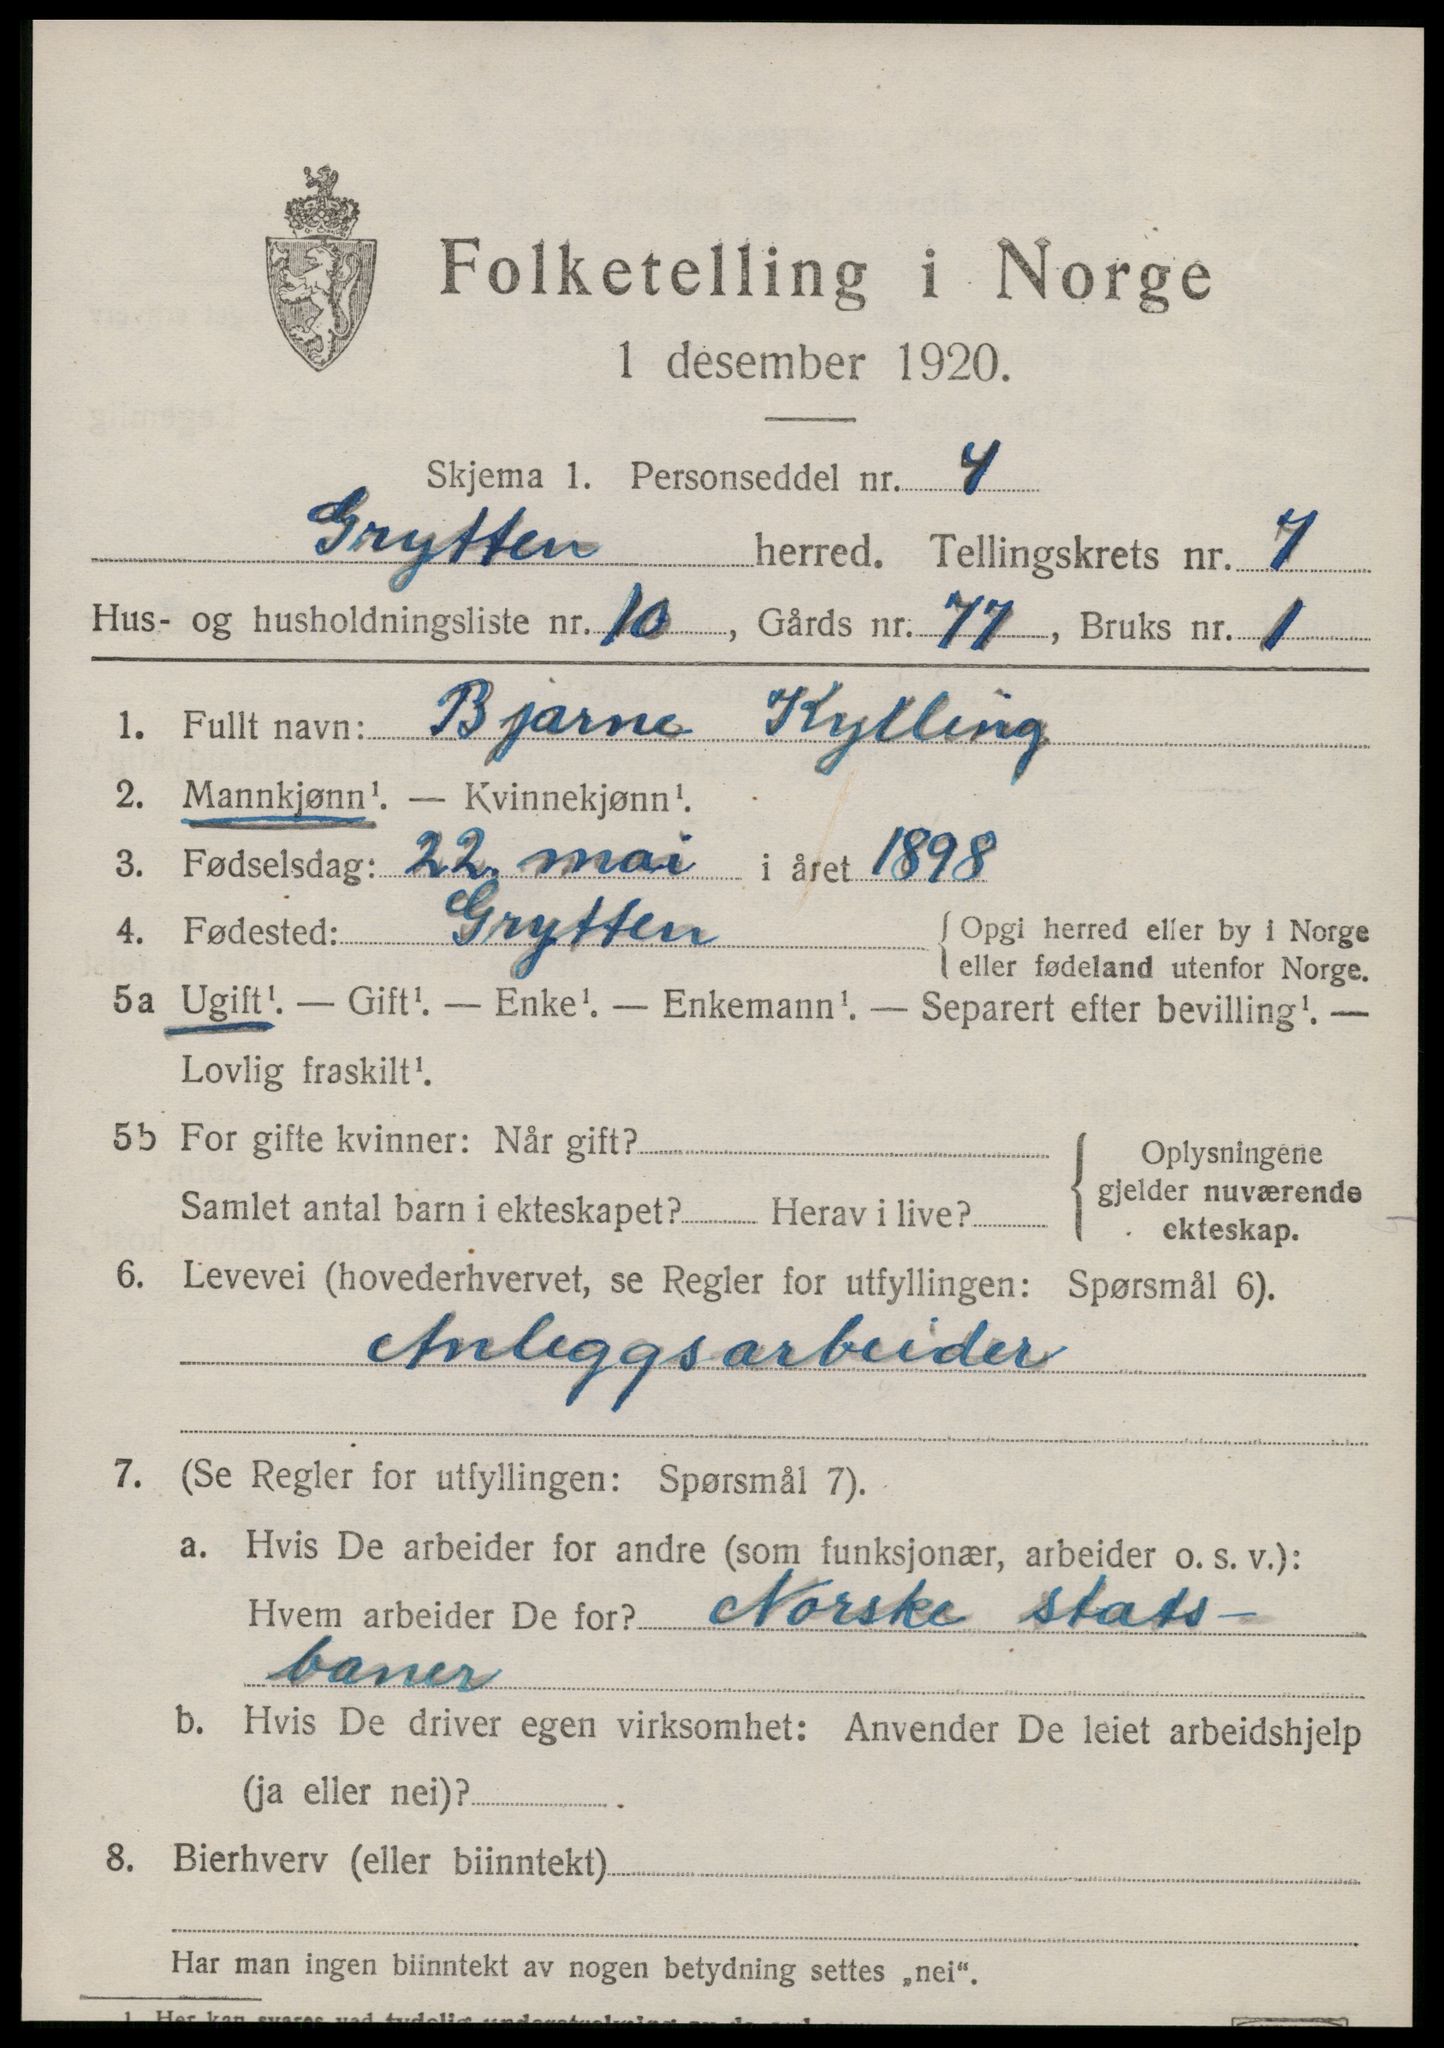 Folketelling i Norge
1 desember 1920.
Skjema 1. Personseddel nr. 4
Grytten herred. Tellingskrets nr. 7
Hus- og husholdningsliste nr. 10, Gårds nr. 77, Bruks nr. 1
1. Fullt navn: Bjarne Kylling
2. Mannkjønn¹. — Kvinnekjønn¹.
3. Fødselsdag: 22. mai i året 1898
4. Fødested: Grytten { Opgi herred eller by i Norge
eller fødeland utenfor Norge.
5a Ugift¹. — Gift¹. — Enke¹. — Enkemann¹. — Separert efter bevilling¹. —
Lovlig fraskilt¹.
5b For gifte kvinner: Når gift? { Oplysningene
gjelder nuværende
Samlet antal barn i ekteskapet? Herav i live?
ekteskap.
6. Levevei (hovederhvervet, se Regler for utfyllingen: Spørsmål 6).
Anleggsarbeider
7. (Se Regler for utfyllingen: Spørsmål 7).
a. Hvis De arbeider for andre (som funksjonær, arbeider o. s. v.):
Hvem arbeider De for? Norske stats-
baner
b. Hvis De driver egen virksomhet: Anvender De leiet arbeidshjelp
(ja eller nei)?
8. Bierhverv (eller biinntekt)
Har man ingen biinntekt av nogen betydning settes „nei“.
1. Her kan svares ved tydelig understrekning av de